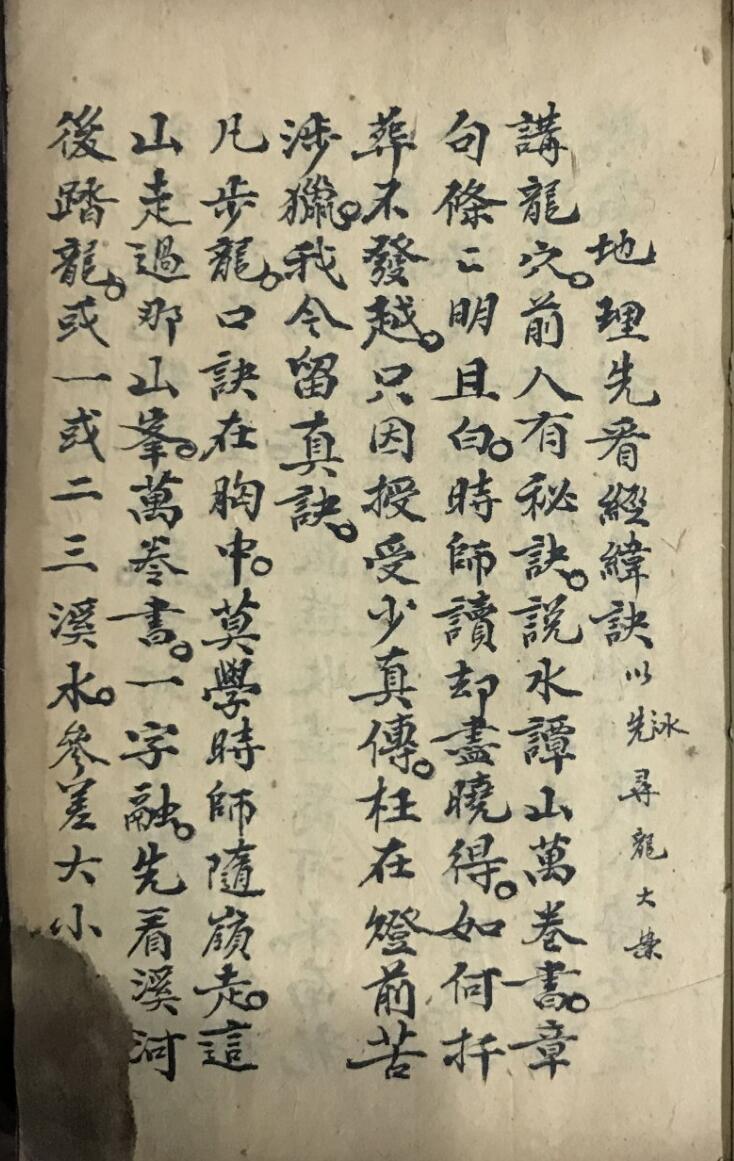 地理先看經緯訣以先泳尋龍大
講龍穴。前人有秘訣。説水譚山萬卷書。章
句條〻明且白。時師讀却盡曉得。如何扦
葬不發越。只因授受少真傳。枉在燈前苦
涉獵。我今留真訣。
凡步龍。口訣在胸中。莫學時師隨嶺走。這
山走過那山峯。萬卷書。一字融。先看溪河
後踏龍。或一或二三溪水。參差大小